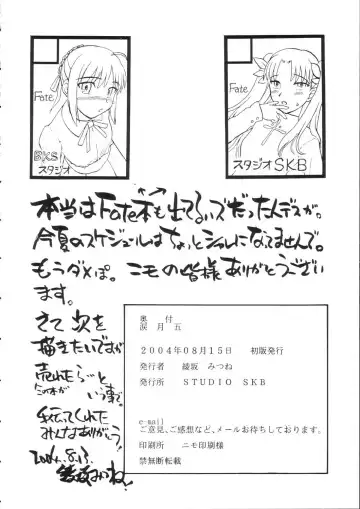 Fate
BKS
スタジオ
Fate
スタジオ SKB
本当はFate本も出てるハズだったんデスが。
今夏のスケジュールはちょっとシャレになってませんで。
もうダメぽ。ニモの皆様ありがとうござい
ます。
さて次を
描きたいですが
売れたら…と
この本が
いう事で。
手伝ってくれた
みんなありがとう!
2004.8.13.
綾坂みつね
奥 付
涙 月 五
2004年08月15日 初版発行
発行者 綾坂 みつね
発行所 STUDIO SKB
e-mail
ご意見、ご感想など、メールお待ちしております。
印刷所 ニモ印刷様
禁無断転載